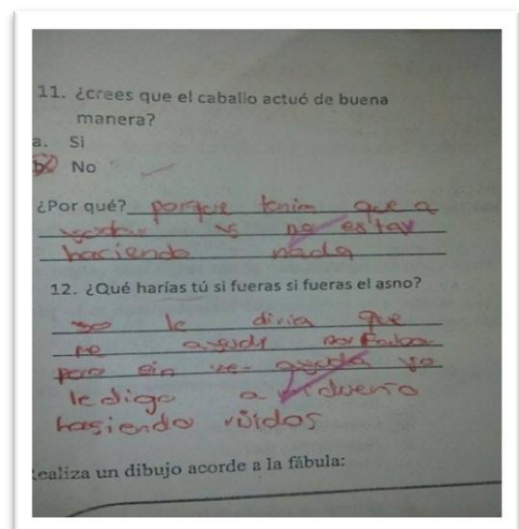 11. ¿crees que el caballo actuó de buena
manera?
a. Si
b. No
¿Por qué? porque tenia que a
y no estar
haciendo nada
12. ¿Qué harías tú si fueras si fueras el asno?
yo le diria que
me ayude por fabor
pero sin me ayuda yo
le digo a mi dueño
hasiendo rüidos
Realiza un dibujo acorde a la fábula: